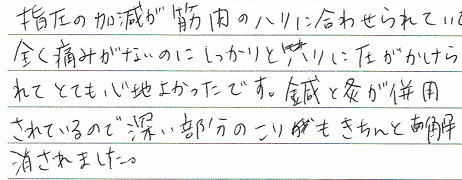 指圧の加減が筋肉のハリに合わせられていて
全く痛みがないのにしっかりとハリに圧がかけら
れてとても心地よかったです。鍼と灸が併用
されているので深い部分のこりもきちんと解
消されました。